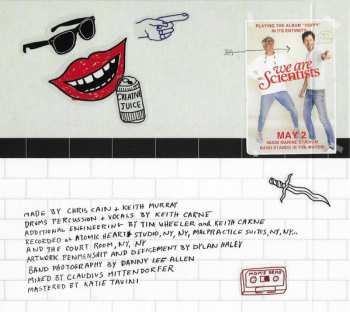 PLAYING THE ALBUM "HUFFY"
IN ITS ENTIRETY
we are
Scientists
MAY 2
CREATIVE
JUICE
MADE BY CHRIS CAIN & KEITH MURRAY
DRUMS PERCUSSION & VOCALS BY KEITH CARNE
ADDITIONAL ENGINEERING BY TIM WHEELER AND KEITH CARNE
RECORDED AT ATOMIC HEART STUDIO, NY, NY, MALPRACTICE SUITES, NY, NY...
AND THE COURT ROOM, NY, NY
ARTWORK PENMENSHIT AND DEFICEMENT BY DYLAN HALEY
BAND PHOTOGRAPHY BY DANNY LEE ALLEN
MIXED BY CLAUDIUS MITTENDORFER
MASTERED BY KATIE TAVINI